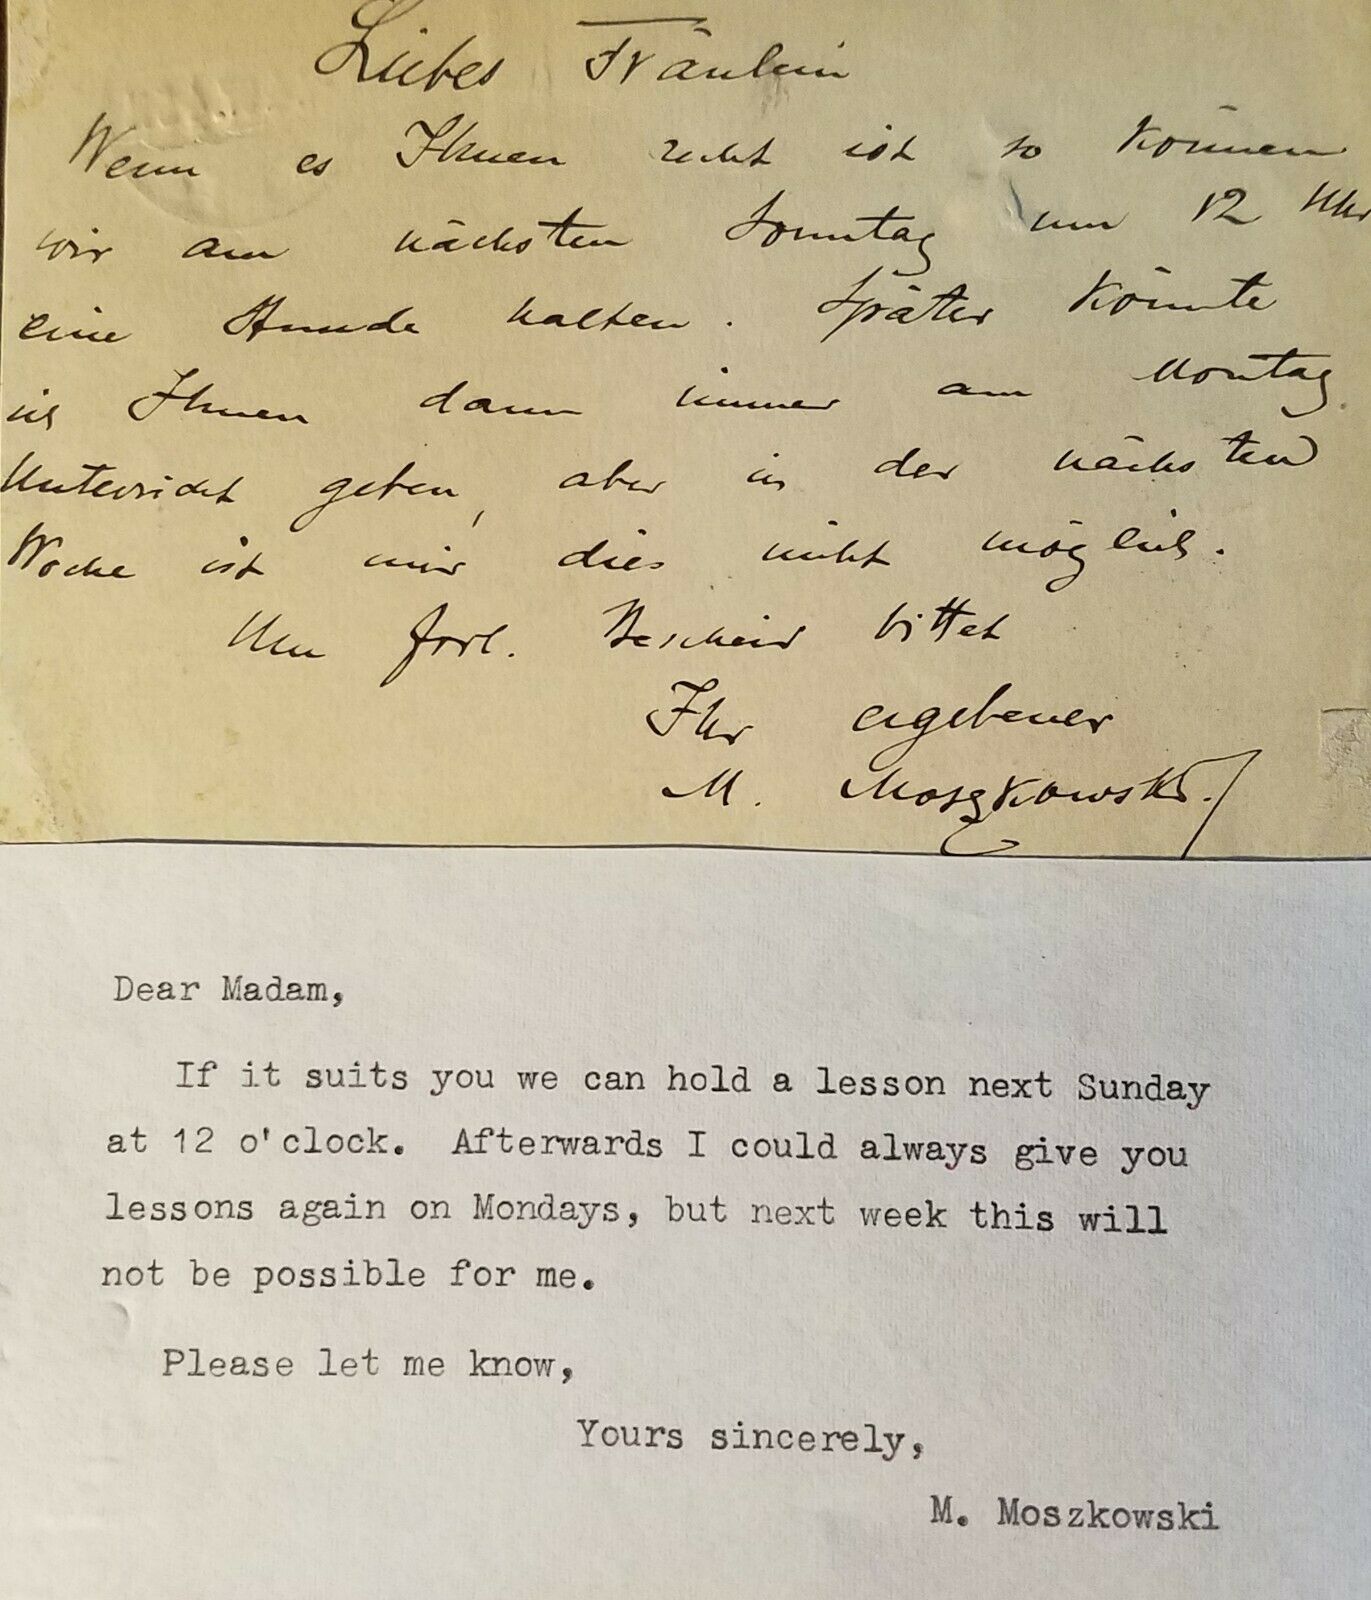 Liebes Fräulein
Wenn es Ihnen recht ist so können
wir am nächsten Sonntag um 12 Uhr
eine Stunde halten. Später könnte
ich Ihnen dann immer am Montag
Unterricht geben, aber in der nächsten
Woche ist mir dies nicht möglich.
Um frdl. Bescheid bittet
Ihr ergebener
M. Moszkowski.
Dear Madam,
If it suits you we can hold a lesson next Sunday
at 12 o'clock. Afterwards I could always give you
lessons again on Mondays, but next week this will
not be possible for me.
Please let me know,
Yours sincerely,
M. Moszkowski